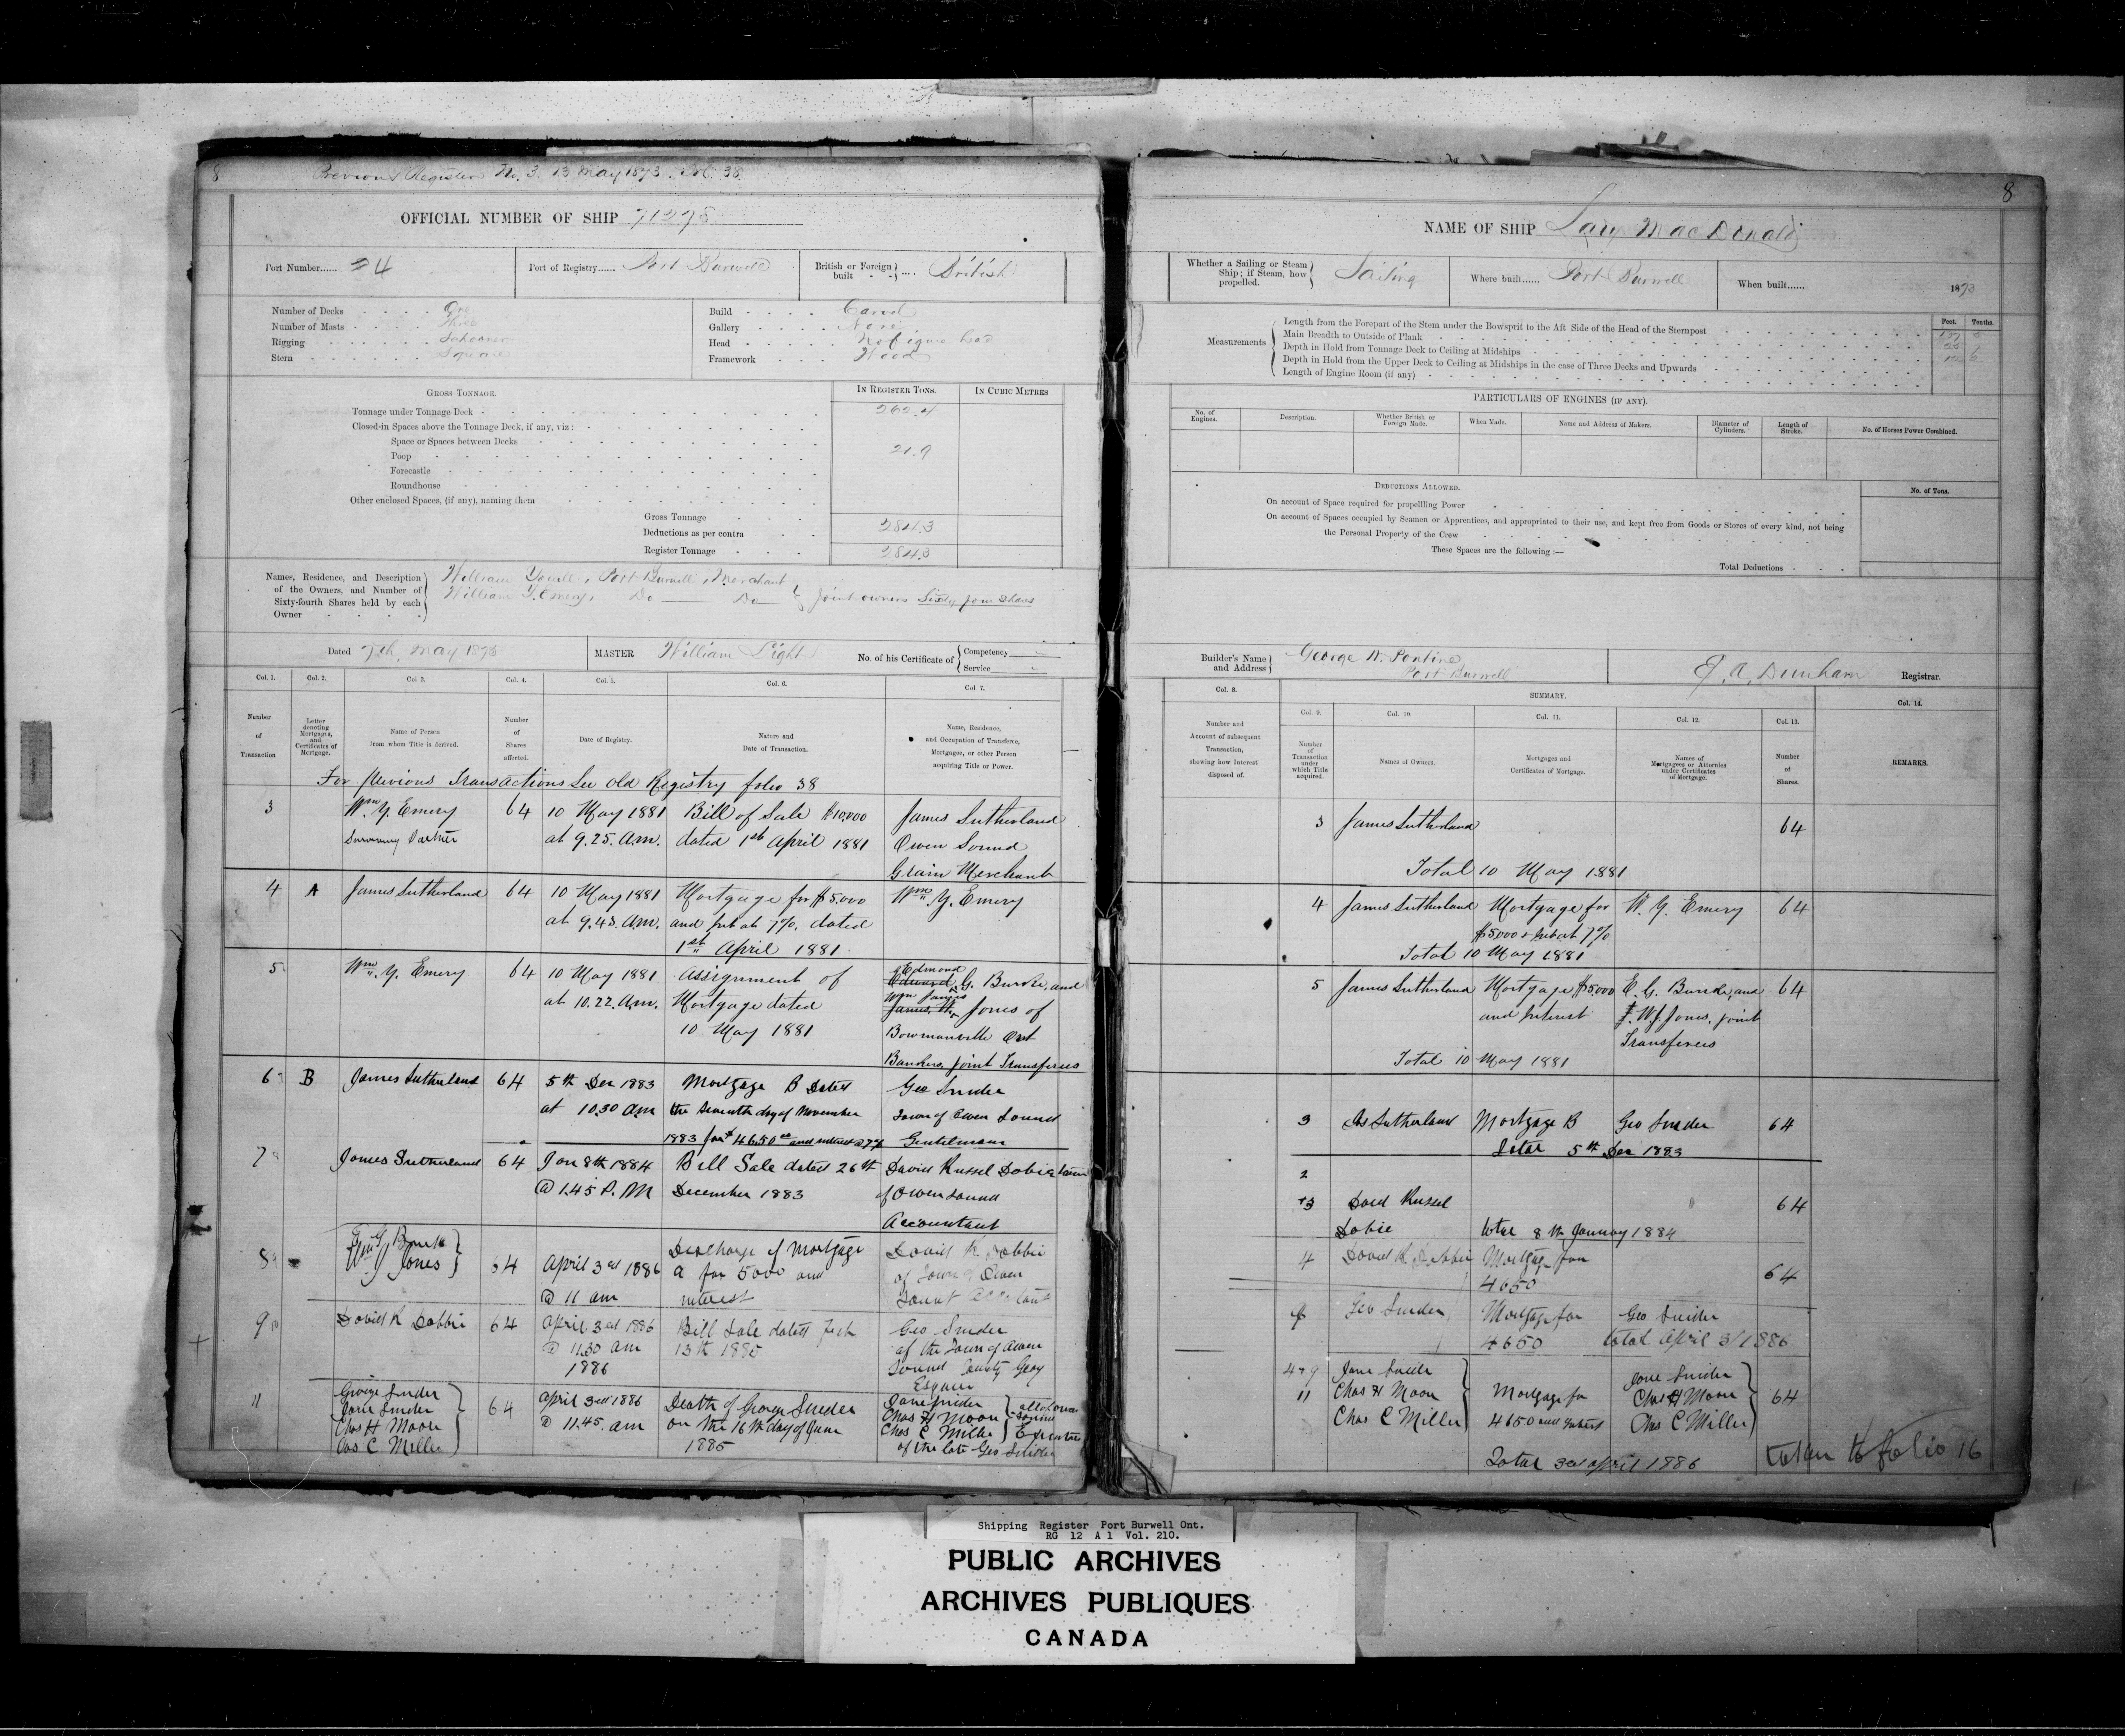 8
Previous Register No. 3. 13 May 1873. Fol. 38
OFFICIAL NUMBER OF SHIP 71275
Port Number...... 24
Port of Registry...... Port Burwell
British or Foreign built .... British
Number of Decks One
Number of Masts Three
Rigging Schooner
Stern Square
Build Carvel
Gallery None
Head No figure head
Framework Wood
GROSS TONNAGE.
IN REGISTER TONS.
IN CUBIC METRES
Tonnage under Tonnage Deck 262.4
Closed-in Spaces above the Tonnage Deck, if any, viz:
Space or Spaces between Decks
Poop 21.9
Forecastle
Roundhouse
Other enclosed Spaces, (if any), naming them
Gross Tonnage 284.3
Deductions as per contra
Register Tonnage 284.3
Names, Residence, and Description of the Owners, and Number of Sixty-fourth Shares held by each Owner
William Youell, Port Burwell, Merchant
William Y. Emery, Do Do Joint owners Sixty four shares
Dated 7th May 1873
MASTER William Light
No. of his Certificate of Competency Service
Col. 1. Col. 2. Col 3. Col. 4. Col. 5. Col. 6. Col 7.
Number of Transaction
Letter denoting Mortgages, and Certificates of Mortgage.
Name of Person from whom Title is derived.
Number of Shares affected.
Date of Registry.
Nature and Date of Transaction.
Name, Residence, and Occupation of Transferee, Mortgagee, or other Person acquiring Title or Power.
For previous Transactions See old Registry folio 38
3 Wm. Y. Emery 64 10 May 1881 Bill of Sale $10,000 James Sutherland
Surviving Partner at 9.25. A.M. dated 1st April 1881 Owen Sound
Grain Merchant
4 A James Sutherland 64 10 May 1881 Mortgage for $5.000 Wm. Y. Emery
at 9.43. A.M. and Int at 7%. dated
1st April 1881
5 Wm. Y. Emery 64 10 May 1881 Assignment of Edmond Edward G. Burke, and
at 10.22. A.M. Mortgage dated Wm James James, W. Jones of
10 May 1881 Bowmanville Ont
Bankers, Joint Transferees
6 B James Sutherland 64 5th Dec 1883 Mortgage B Dated Geo Snider
at 10.30 am the Seventh day of November Town of Owen Sound
1883 for $4650 and interest @ 7% Gentleman
7 James Sutherland 64 Jan 8th 1884 Bill Sale dated 26th David Russel Dobie Town
@ 1.45 P.M December 1883 of Owen Sound
Accountant
8 E G Burke
Wm J Jones 64 April 3rd 1886 Discharge of Mortgage David R Dobbie
@ 11 am A for 5000 and of Town of Owen
interest Sound
9 David R Dobbie 64 April 3rd 1886 Bill Sale dated Feb Geo Snider
@ 11.30 am 13th 1885 of the Town of Owen
1886 Sound County Grey
Esquire
11 George Snider 64 April 3rd 1886 Death of George Snider Jane Snider
Jane Snider @ 11.45. am on the 16th day of June Chas H Moore all of Owen Sound
Chas H Moore 1885 Chas C Miller Executors
Chas C Miller of the late Geo Snider
8
NAME OF SHIP Lady MacDonald
Whether a Sailing or Steam Ship; if Steam, how propelled. Sailing
Where built...... Port Burwell
When built...... 1873
Measurements
Feet. Tenths.
Length from the Forepart of the Stem under the Bowsprit to the Aft Side of the Head of the Sternpost
Main Breadth to Outside of Plank
Depth in Hold from Tonnage Deck to Ceiling at Midships
Depth in Hold from the Upper Deck to Ceiling at Midships in the case of Three Decks and Upwards
Length of Engine Room (if any)
PARTICULARS OF ENGINES (IF ANY).
No. of Engines.
Description.
Whether British or Foreign Made.
When Made.
Name and Address of Makers.
Diameter of Cylinders.
Length of Stroke.
No. of Horses Power Combined.
DEDUCTIONS ALLOWED.
No. of Tons.
On account of Space required for propellling Power
On account of Spaces occupied by Seamen or Apprentices, and appropriated to their use, and kept free from Goods or Stores of every kind, not being
the Personal Property of the Crew
These Spaces are the following :—
Total Deductions
Builder's Name and Address George W. Pontine
Port Burwell
Dunham Registrar.
SUMMARY.
Col. 8. Col. 9. Col. 10. Col. 11. Col. 12. Col. 13. Col. 14.
Number and Account of subsequent Transaction, showing how Interest disposed of.
Number of Transaction under which Title acquired.
Names of Owners.
Mortgages and Certificates of Mortgage.
Names of Mortgagees or Attornies under Certificates of Mortgage.
Number of Shares.
REMARKS.
3 James Sutherland 64
Total 10 May 1881
4 James Sutherland Mortgage for W. Y. Emery 64
$5,000 & Int at 7%
Total 10 May 1881
5 James Sutherland Mortgage $5,000 E. G. Burke, and 64
and Interest W J Jones, joint
Transferees
Total 10 May 1881
3 Jas Sutherland Mortgage B Geo Snider 64
Total 5th Dec 1883
2
3 David Russel 64
Dobie total 8th January 1884
4 David R Dobbie Mortgage for 64
4650
9 Geo Snider Mortgage for Geo Snider
4650 total April 3/1886
4 & 9 Jane Snider Jane Snider
11 Chas H Moore Mortgage for Chas H Moore 64
Chas C Miller 4650 and Interest Chas C Miller
Total 3rd april 1886
taken to folio 16
Shipping Register Port Burwell Ont.
RG 12 A 1 Vol. 210.
PUBLIC ARCHIVES
ARCHIVES PUBLIQUES
CANADA